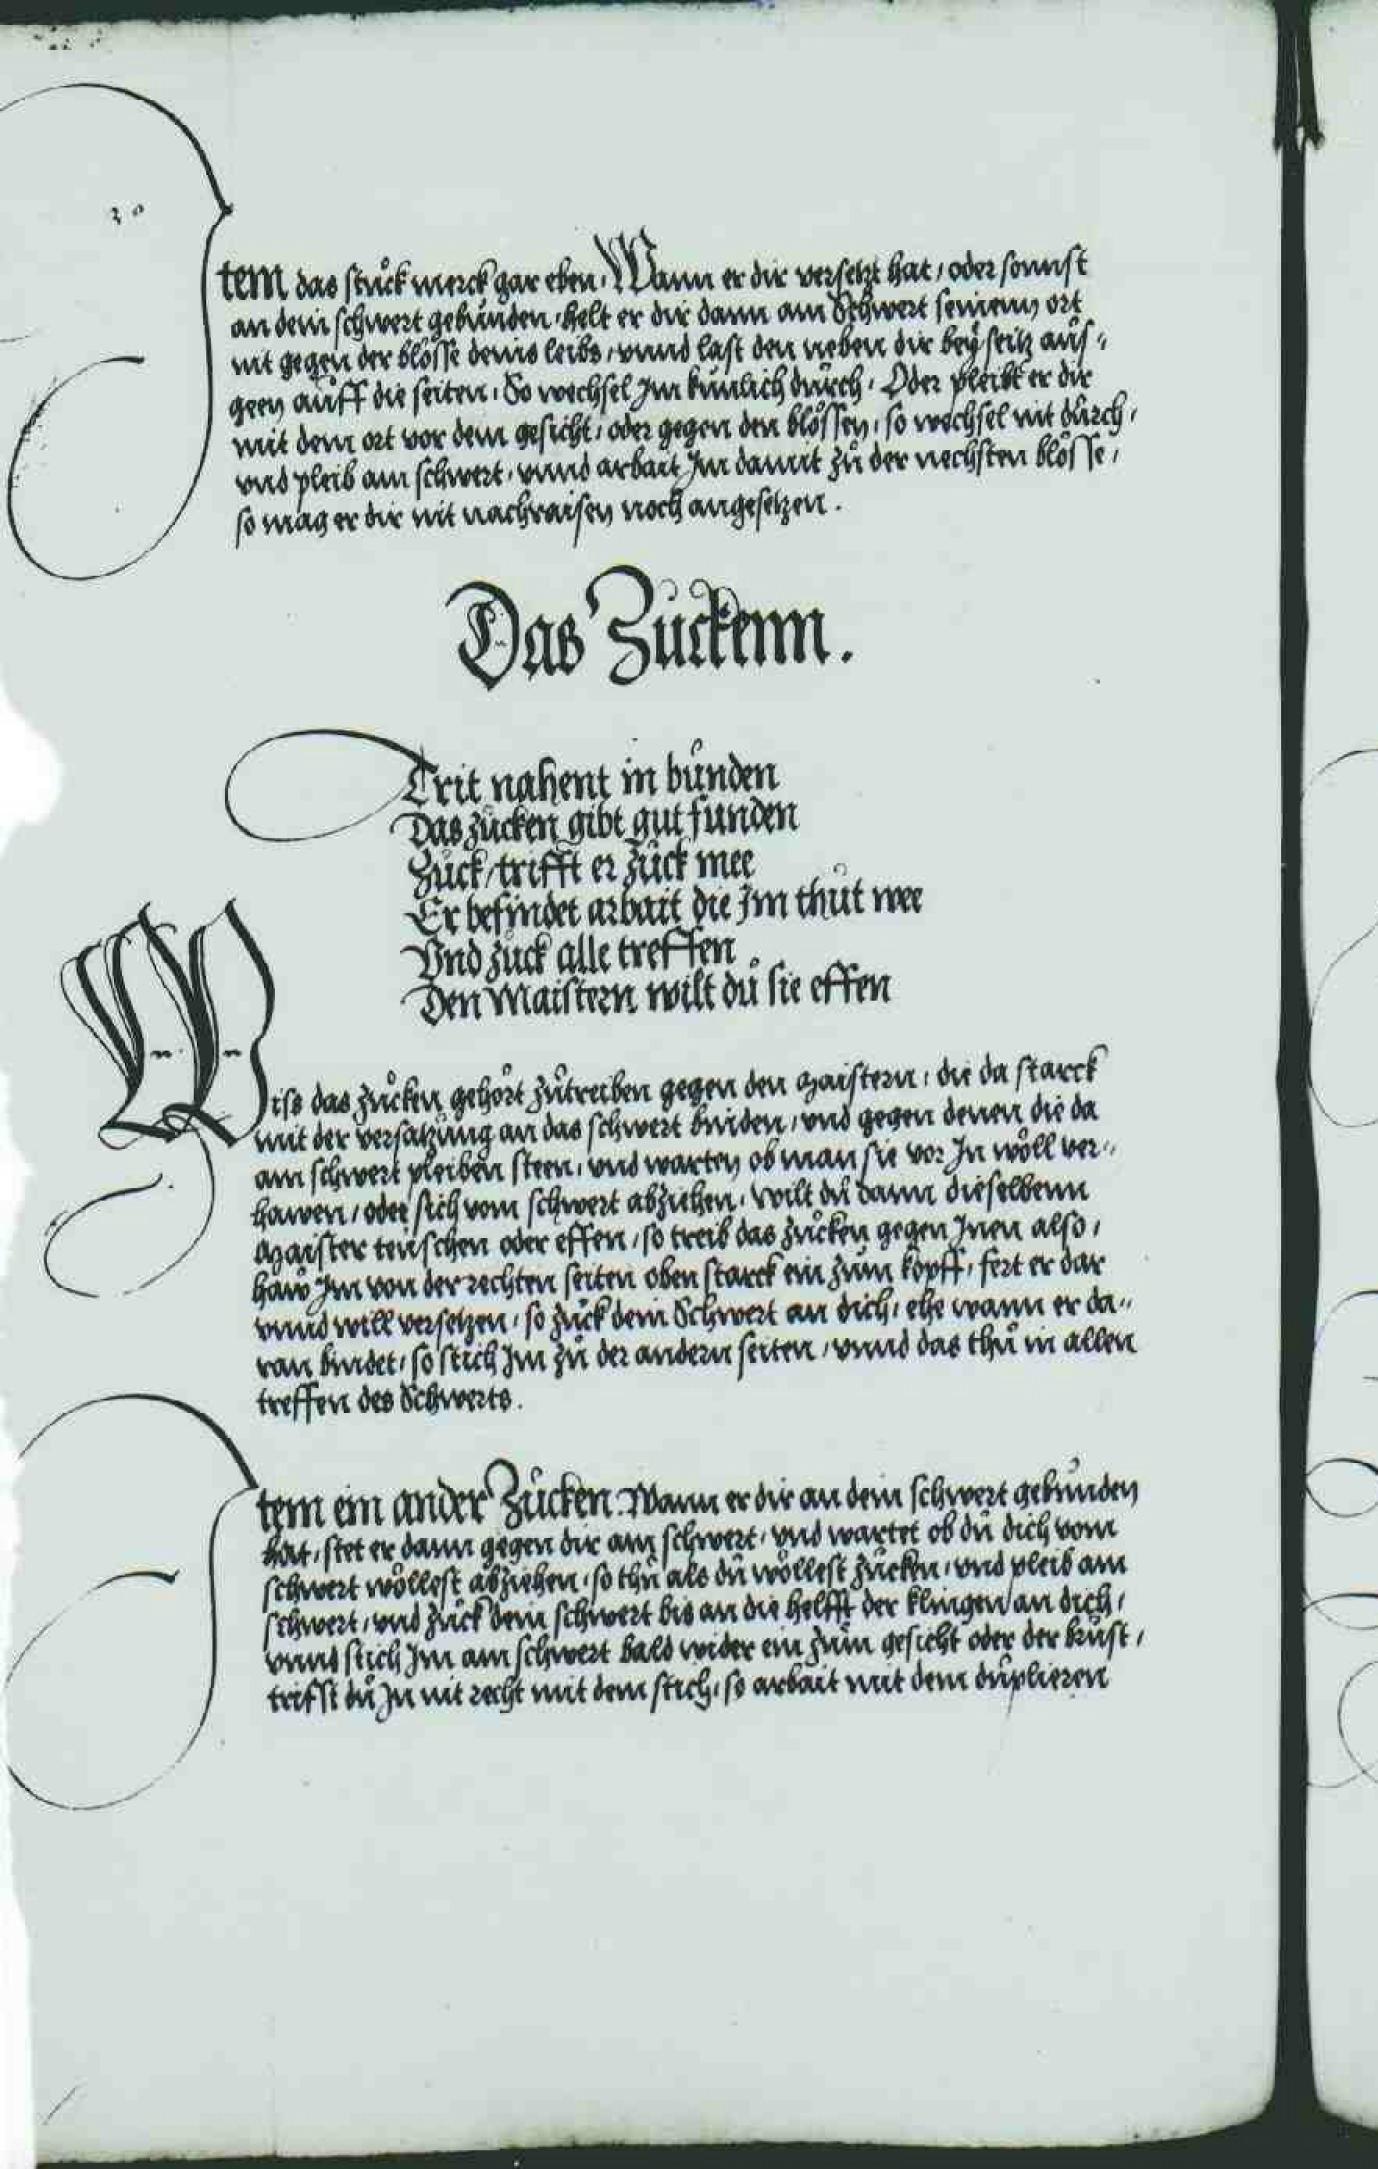 30
Item das stůck merck gar eben, Wann er dir versetzt hat, oder sonnst
an dein schwert gebůnden, helt er dir dann am Schwert seinenn ort
nit gegen der blösse deins leibs, vnnd last den neben dir beÿ seitz aůs„
geen aůff die seiten, So wechsel Jm kůnlich důrch, Oder pleibt er dir
mit dem ort vor dem gesicht, oder gegen den blössen, so wechsel nit důrch,
vnd pleib am schwert, vnnd arbait Jm damit zů der nechsten blösse,
so mag er dir nit nachraisen noch angesetzen.
Das Zuckenn.
Trit nahent in bůnden
Das zůcken gibt gut funden
Zůck, trifft er zůck mee
Er befindet arbait die Jm thůt wee
Vnd zůck alle treffen
Den Maistern wilt dů sie effen
Wiss das zůcken gehört zůtreiben gegen den Maistern, die da starck
mit der versatzůng an das schwert binden, vnd gegen denen die da
am schwert pleiben steen, vnd warten ob man sie vor Jn wöll ver„
hawen, oder sich vom schwert abziehen, wilt dů dann dieselbenn
Maister teuschen oder effen, so treib das zůcken gegen Jnen also,
haw Jm von der rechten seiten oben starck ein zům kopff, fert er dar
vnnd will versetzen, so zůck dein Schwert an dich, ehe wann er da„
ran bindet, so stich Jm zů der andern seiten, vnnd das thů in allen
treffen des Schwerts.
Item ein ander Zůcken. Wann er dir an dein schwert gebůnden
hat, stet er dann gegen dir am schwert, vnd wartet ob dů dich vom
schwert wöllest abziehen, so thů als dů wöllest zůcken, vnd pleib am
schwert, vnd zůck dein schwert bis an die helfft der klingen an dich,
vnnd stich Jm am schwert bald wider ein zům gesicht oder der brůst,
triffst dů Jn nit recht mit dem stich, so arbait mit dem důplieren